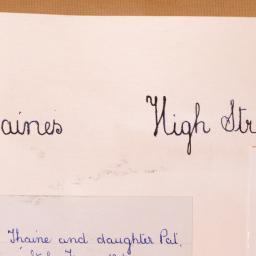 aines High Str
Thaine and daughter Pat,